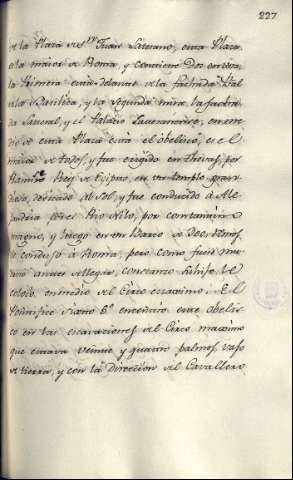 227
de la Plaza de Sn Juan Laterano, esta Plaza
es la maior de Roma, y contiene dos
la Primera esta delante de la fachada
de la Basilica, y la segunda mira la fachada
Lateral, y el Palacio Lateranense, en me
dio de esta Plaza está el obelisco, es el
maior de todos, y fue erigido en Thevas, por
Rey de Egipto, en un templo gran
dioso, dedicado al Sol, y fue conducido á Ale
jandria por el Rio Nilo, por Constantino
magno, y luego en un Barco de 300. remos,
lo condujo á Roma, pero como fuese mu
erto antes de llegar, Constanzo su hijo, le
coloco, en medio del Circo maximo: El
Pontifice Sixto 5º encontro este obelis
co en las excavaciones del Circo maximo
que estava veinte y quatro palmos vajo
de tierra, y con la Direccion del Cavallero